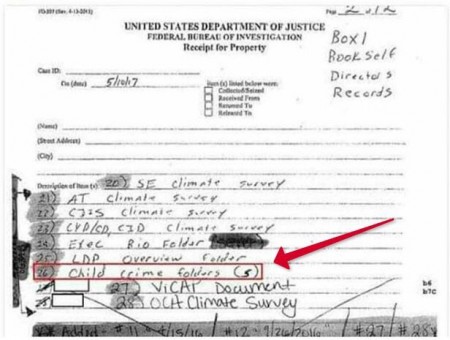 FD-597 (Rev. 4-13-2015)
Page 2 of 2
UNITED STATES DEPARTMENT OF JUSTICE
FEDERAL BUREAU OF INVESTIGATION
Receipt for Property
Box 1
Book Self
Director's
Records
Case ID:
On (date) 5/10/17
item (s) listed below were:
Collected/Seized
Received From
Returned To
Released To
(Name)
(Street Address)
(City)
Description of Item (s): 20) SE climate survey
21) AT climate survey
22) CJIS climate survey
23) CyD/CD, CTD climate survey
24) Exec Bio Folder
25) LDP Overview Folder
26) Child crime folders (5)
27) ViCAP Document
28) OCH Climate Survey
b6
b7C
Added - # 11 - 
# 12 - 9/26/2016
# 27
# 28